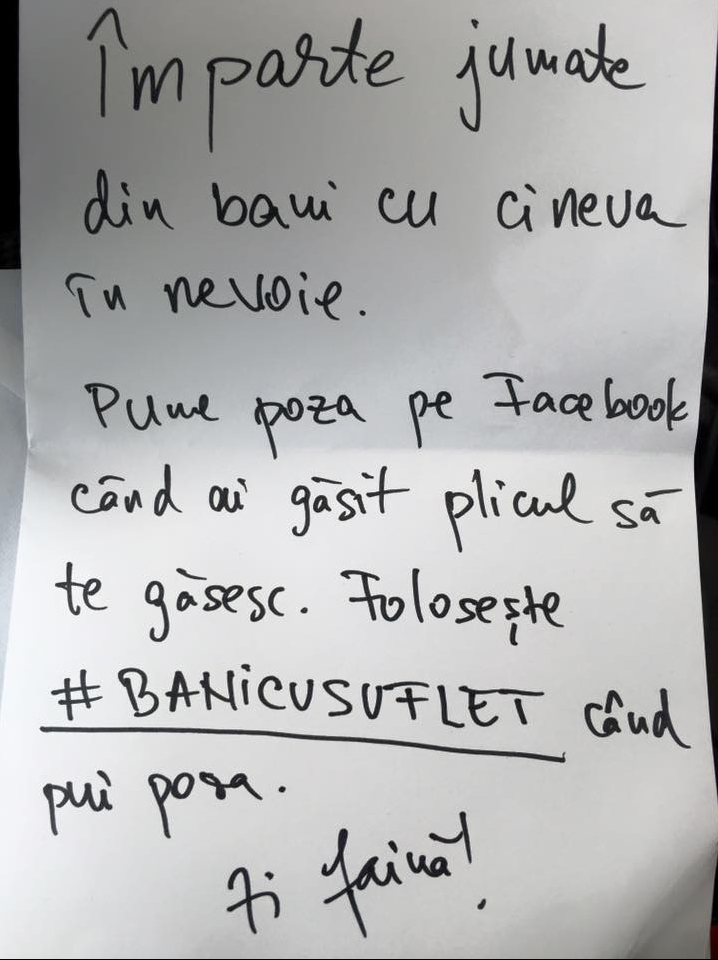 Împarte jumate
din bani cu cineva
în nevoie.
Pune poza pe Facebook
când ai găsit plicul să
te găsesc. Folosește
#BANiCUSUFLET când
pui poza.
Zi faină!